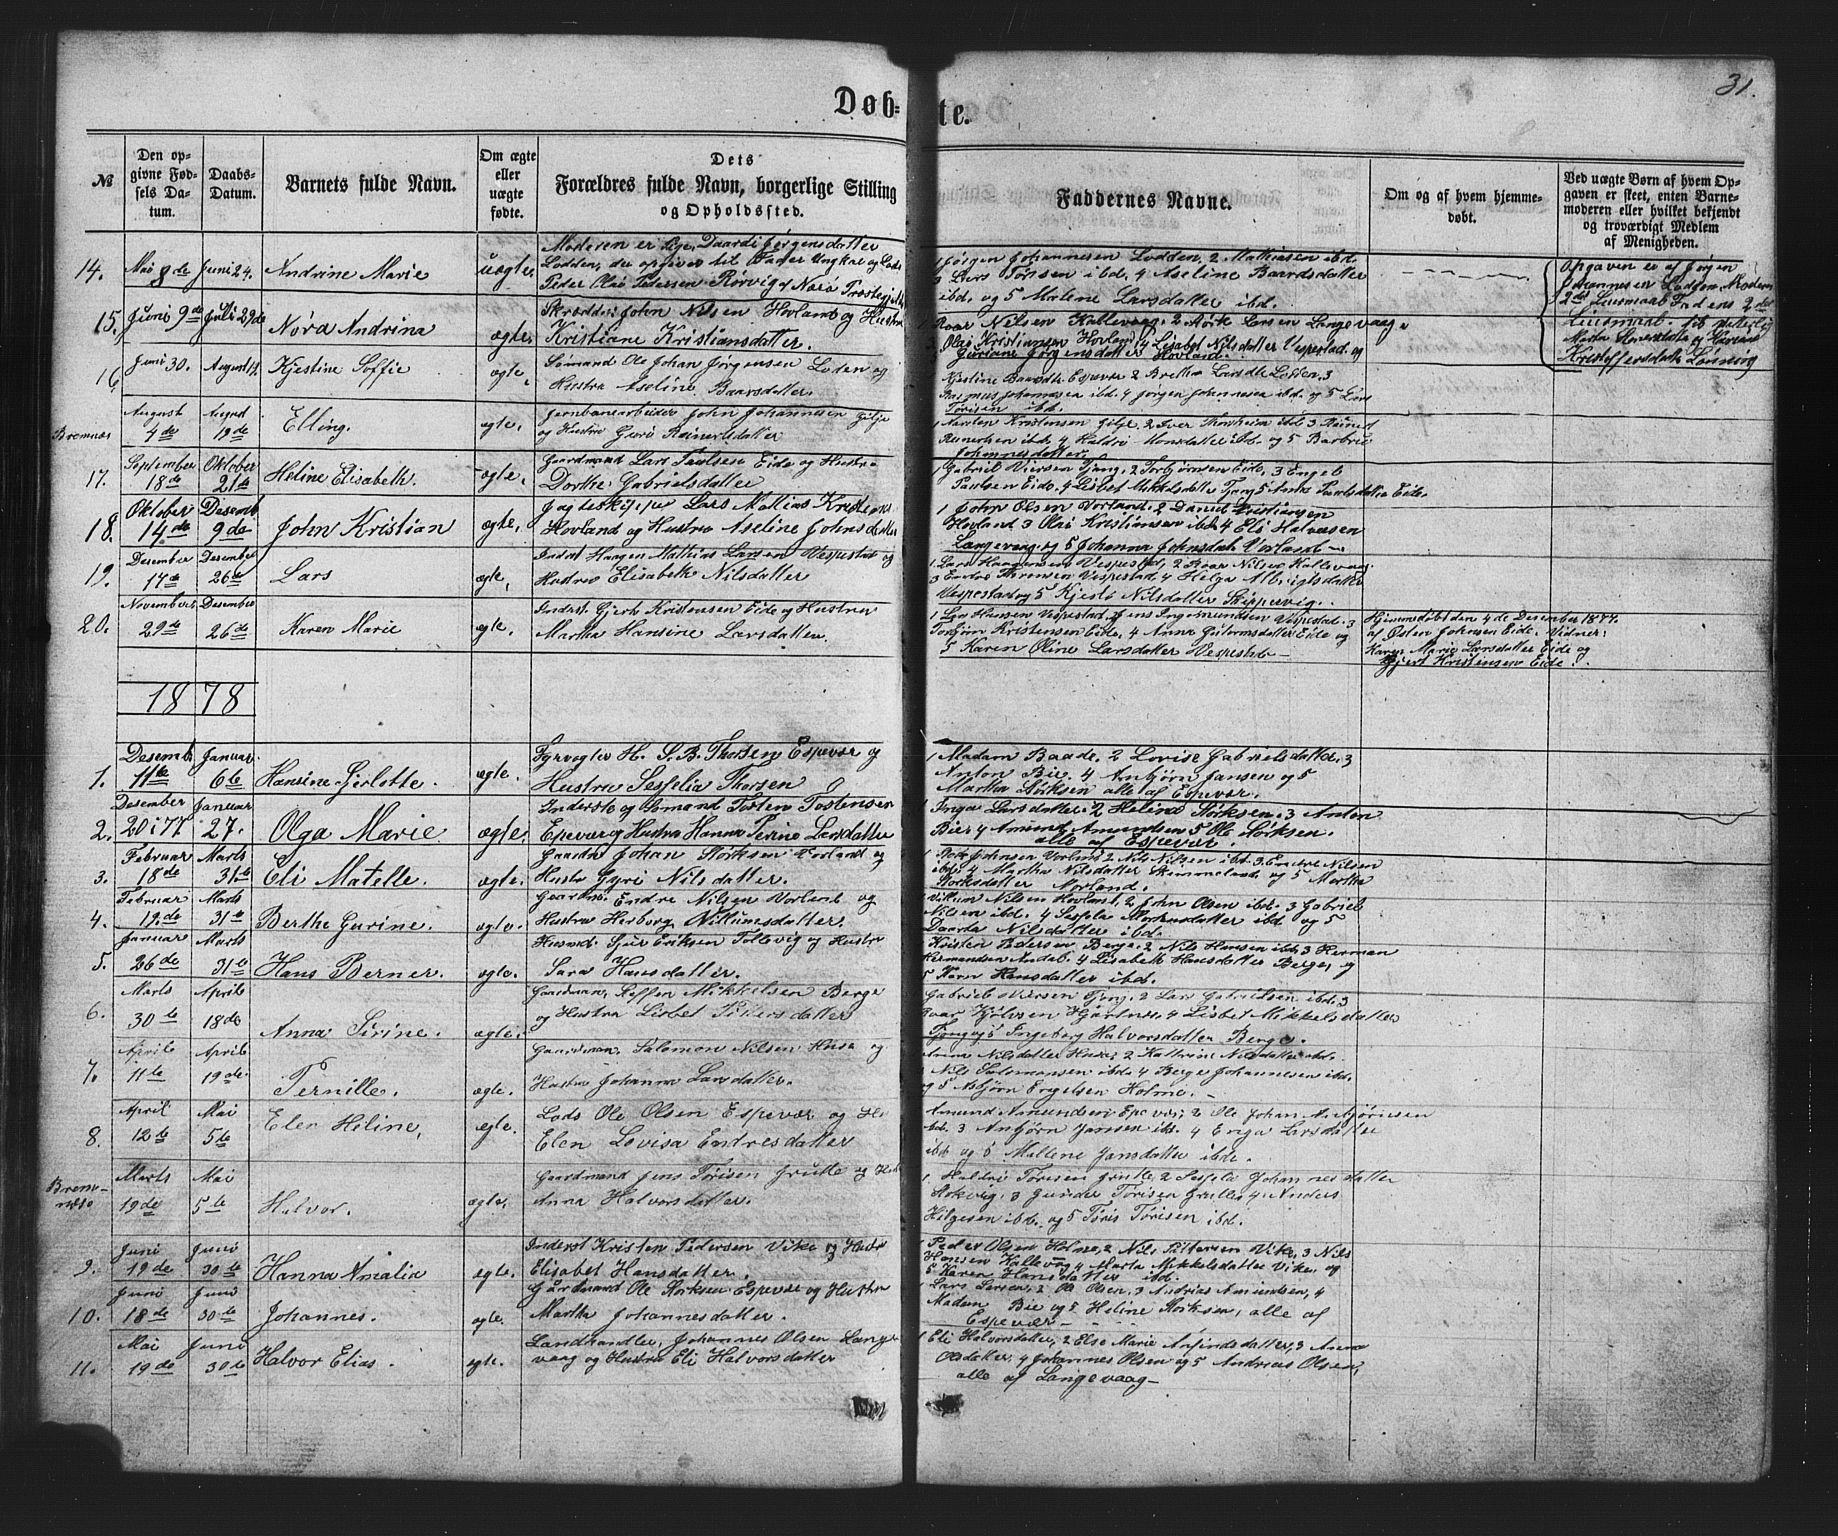 31.
Døbte.
№
Den opgivne Fødsels Datum.
Daabs-Datum.
Barnets fulde Navn.
Om ægte eller uægte fødte.
Dets Forældres fulde Navn, borgerlige Stilling og Opholdssted.
Faddernes Navne.
Om og af hvem hjemmedøbt.
Ved uægte Børn af hvem Opgaven er skeet, enten Barnemoderen eller hvilket bekjendt og troværdigt Medlem af Menigheden.
14. Mai 8de Juni 24. Andrine Marie uægte
Moderen er Daardi Jørgensdatter
Lodden, du opgiver til Fader Ungkal og Lods
Peder Olai Pedersen Rørvig af Nærø
1 Jørgen Johannesen Lodden, 2 Mathiasen ibd.
3 Lars Tørisen ibd. 4 Aseline Baardsdatter
ibd. og 5 Malene Larsdatter ibd.
Opgaven er af Jørgen
Johannesen Lodden, Moderen
2det Leiermaal Faderens 2det
Leiermaal.
15. Juni 9de Juli 29de Nora Andrina ægte.
Skrædder John Nilsen Hovland og Hustru
Kristiane Kristiansdatter.
1 Roar Nilsen Kallevaag, 2 Størk Larsen Langevaag
Olai Kristiansen Hovland 4 Lisabet Nilsdatter Vespestad og
5 Guriane Jørgensdatter Hovland.
16 Juni 30. August 19. Kjestine Soffie ægte.
Sømand Ole Johan Jørgensen Loden og
Hustru Aseline Baarsdatter.
Kjestine Baardsdtr Espevær 2 Lodden, 3
Rasmus Johannesen ibd. 4 Jørgen Johannesen ibd. og 5 Lars
Tørisen ibd.
Bremnæs August 4de August 19de Elling. ægte.
Jernbanearbeider John Johannesen Gilje
og Hustru Guro Reinertsdatter
Kristensen Gilje, 2 Iver Thorheim ibd 3 Reinert
Reinertsen ibd. 4 Haldri Monsdatter ibd. og 5 Barbrie
Johannesdatter.
17. September 18de Oktober 21de Heline Elisabeth. ægte.
Gaardmand Lars Paulsen Eide og Hustru
Dorthe Gabrielsdatter
1 Gabriel Tjong, 2 Torbjørnsen Eide, 3 Engel
Paulsen Eide, 4 Lisbet Mikkelsdatter Tjong 5 Anna Paulsdatter Eide.
18. Oktober 14de Desemb 9de John Kristian ægte,
Jagteskipper Lars Mathias Kristens.
Hovland og Hustru Aseline Johnsdatter
1 John Olsen Vorland. 2 Daniel Kristiansen
Hovland 3 Olai Kristiansen ibd. 4 Eli Halvorsen
Langevaag og 5 Johanna Johnsdatt Vorland.
19. Desember 17de Desember 26de Lars ægte,
Inderst Haagen Mathias Larsen Vespestad og
Hustru Elisabeth Nilsdatter
1 Lars Haagensen Vespestad, 2 Roar Nilsen Kallevaag.
3 Endre Vespestad 4 Helga Albrigtsdatter
Vespestad og 5 Kjersti Nilsdatter Skippervig.
20. November 29de Desember 26de Karen Marie ægte.
Inderst Gjert Kristensen Eide og Hustru
Martha Hansine Larsdatter.
1 Lars Hansen Vespestad, 2 Jens Ingemundsen Vespestad. 3
Torbjørn Kristensen Eide, 4 Anna Guttormsdatter Eide og
5 Karen Oline Larsdatter Vespestad.
Hjemmedøbt den 4de Desember 1877.
af Østen Johnsen Eide. Vidner:
Karen Marie Larsdatter Eide og
Gjert Kristensen Eide.
1878
1. Desemb. 11te Januar 6te Hansine Gjerlotte. ægte.
Fyrvogter H. S. B. Thorsen Espevær og
Hustru Sesselia Thorsen
1 Madam Baade. 2 Lovise Gabrielsdatter. 3
Anton Bie. 4 Anbjørn Jansen og 5
Martha Størksen alle af Espevær.
2. Desember 20 i 77 Januar 27. Olga Marie ægte.
Inderste og Sømand Tosten Tostensen
Espevær og Hustru Hanna Serine Larsdatter
1 Inga Larsdatter. 2 Helina Størksen. 3 Anton
Bie 4 Amund Amundsen 5 Ole Størksen.
alle af Espevær.
3. Februar 18de Marts 31te Eli Matelle. ægte.
Gaardm. Johan Størksen Vorland og
Hustru Gyri Nilsdatter.
1 Johnsen Vorland 2 Nils Nilsen ibd. 3 Endre Nilsen
ibd. 4 Martha Nilsdatter og 5 Martha
Størksdatter Vorland.
4. Februar 19de. Marts 31te Berthe Gurine. ægte.
Gaardm. Endre Nilsen Vorland og
Hustru Herborg Villumsdatter.
Villum Nilsen Hovland, 2 John Olsen ibd. 3 Gabriel
Nilsen ibd. 4 Sesfela ibd og 5
Daarta Nilsdatter ibd.
5. Januar 26de Marts 31te Hans Berner. ægte.
Husmd. Sjur Eriksen Tollevig og Hustru
Sara Hansdatter.
Kristen Pedersen Berge, 2 Nils Hansen ibd. 3 Herman
Hermandsen 4 Lisabeth Hansdatter Berge, og
5 Karn Hansdatter ibd.
6. Marts 30te April 18de Anna Sirine. ægte.
Gaardman. Steffen Mikkelsen Berge
og Hustru Lisbet Pittersdatter
Gabriel Tjong, 2 Lars Gabrielsen ibd. 3
4 Lisbet Mikkelsdatter
Tjong og 5 Ingeberg Halvorsdatter Berge.
7. April 11te April 19de. Pernille. ægte.
Gaardman. Salomon Nilsen Husa og
Hustru Johanna Larsdatter.
Anna Nilsdatter Husa, 2 Kathrine Nilsdatter ibd.
3 Nils Salomonsen ibd. 4 Berge Johannesen ibd.
og 5 Asbjørn Engelsen Holme.
8. April 12te Mai 5te Elen Heline, ægte.
Lods Ole Olsen Espevær og H
Elen Lovisa Endresdatter
Amund Amundsen Espevær, 2 Ole Johan Anbjørnsen
ibd. 3 Anbjørn Jansen ibd. 4 Enga Larsdatter
ibd og 5 Mallene Jansdatter ibd.
Bremnæs Marts 19de Mai 5te Halvor. ægte.
Gaardmand Jens Tørisen Grutle og H
Anna Halvorsdatter.
1 Haldri Tørisen Grutle, 2 Sesfela Johannesdatter
Rokvig, 3 Gunder Tørisen Grutle, 4 Anders
Helgesen ibd. og 5 Tøris Tørisen ibd.
9. Juni 19de Juni 30te Hanna Amalia ægte.
Inderst Kristen Pedersen Vike og Hustru
Elisabet Hansdatter.
1 Peder Olsen Holme, 2 Nils Pittersen Vike, 3 Nils
Hansen Kallevaag 4 Marta Mikkelsdatter Vike, og
5 Karen Hansdatter ibd.
10. Juni 18de Juni 30te Johannes. ægte.
Gårdmand Ole Størksen Espevær og Hustru
Martha Johannesdatter.
1 Lars Larsen, 2 Ole Olsen, 3 Andrias Amundsen, 4
Madam Bie og 5 Heline Størksen, alle af
Espevær.
11. Mai 19de Juni 30te Halvor Elias. ægte.
Landhandler, Johannes Olsen Lange
vaag og Hustru Eli Halvorsdatter
1 Eli Halvorsdatter, 2 Else Marie Anfindsdatter, 3 Anna
Olsdatter, 4 Johannes Olsen og 5 Andreas Olsen,
alle af Langevaag